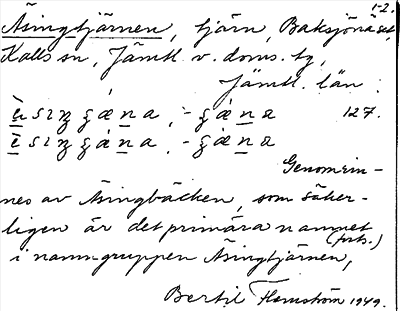 1-2.
Åsingtjärnen, tjärn, Baksjönäset,
Kalls sn, Jämtl. v. doms. tg,
Jämtl. län;
127.
Genomrin-
nes av Åsingbäcken, som säker-
ligen är det primära namnet
i namngruppen Åsingtjärnen,
(forts.)
Bertil Flemström 1949.